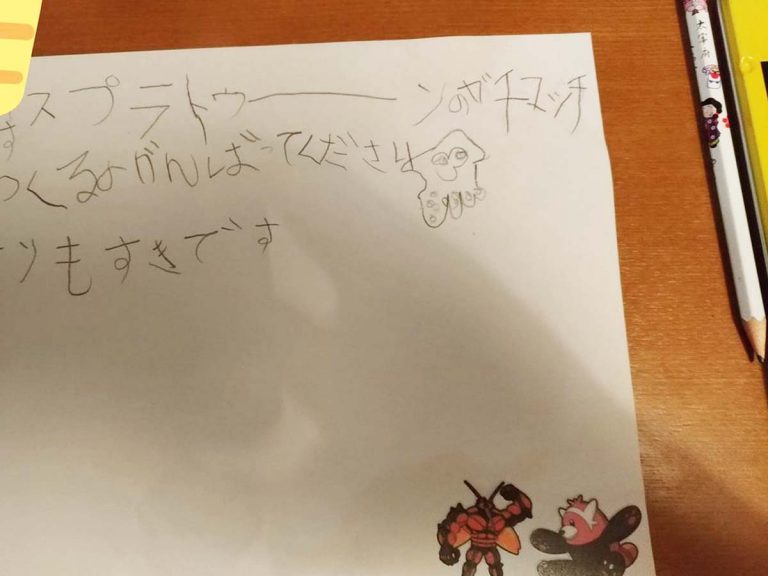 スプラトゥーンのガチマッチ
す
つくるよがんばってください
ソもすきです
太宰府